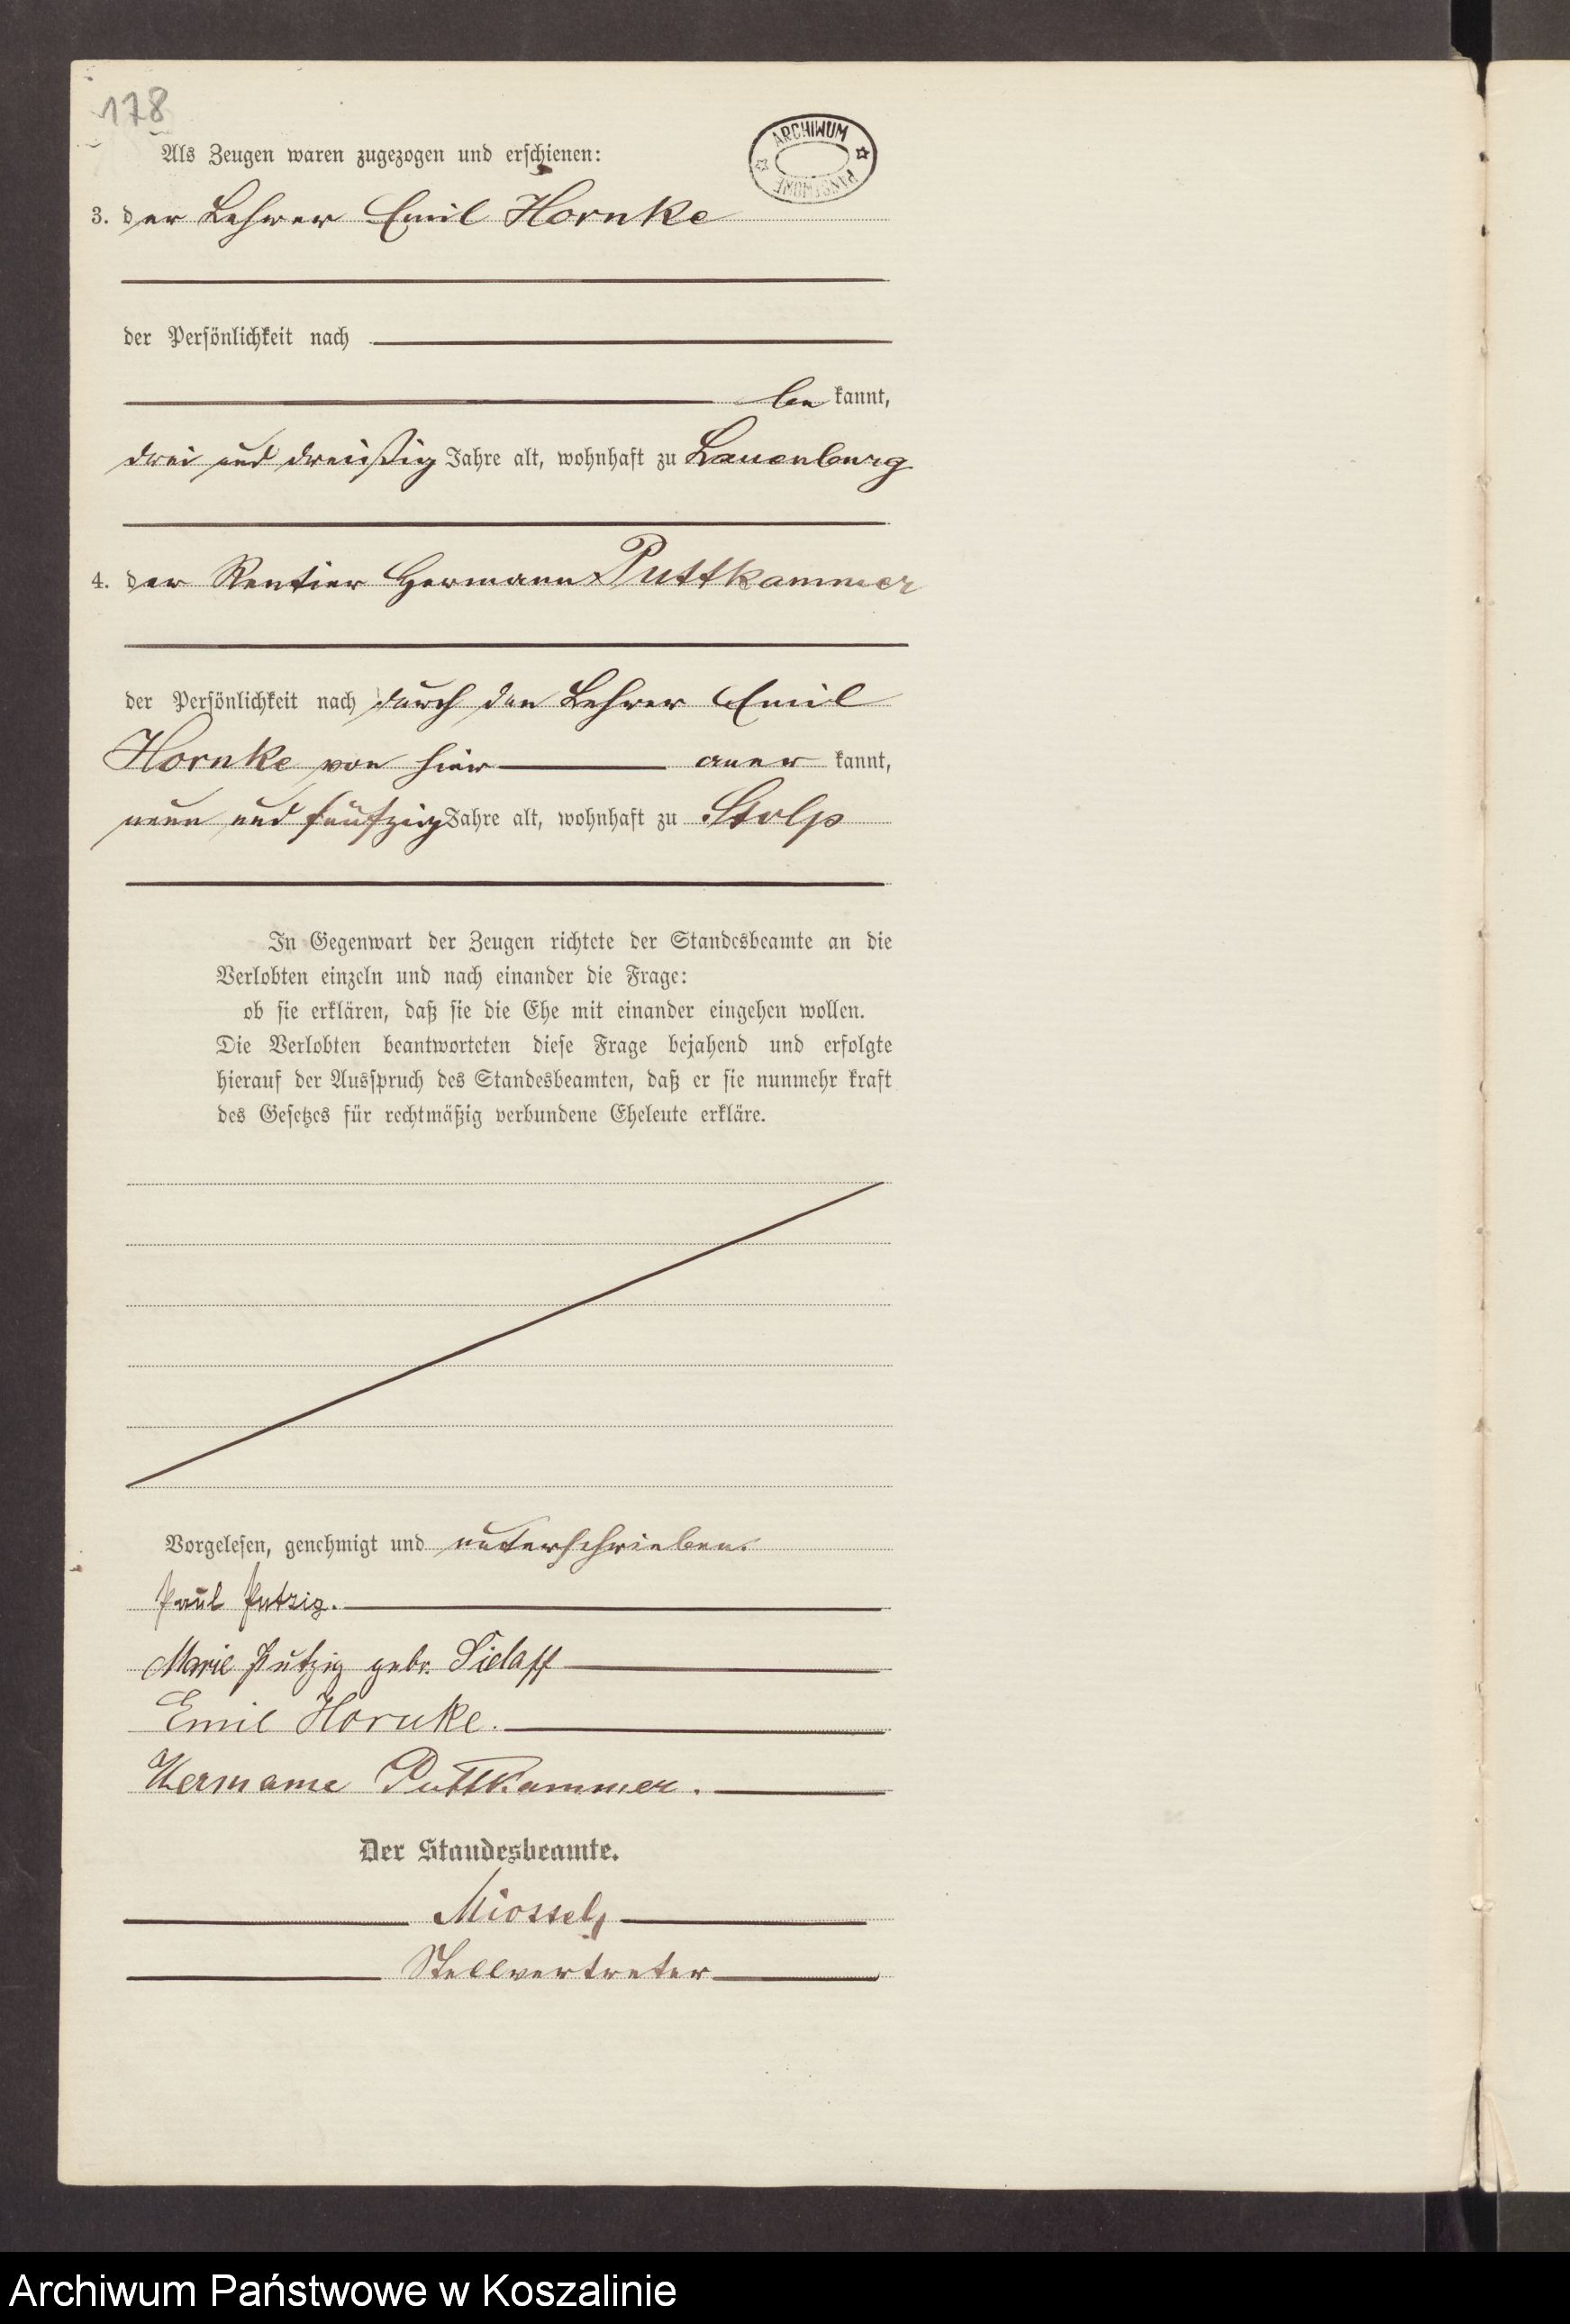 178
ARCHIWUM
PAŃSTWOWE
Als Zeugen waren zugezogen und erschienen:
3. der Lehrer Emil Hornke
der Persönlichkeit nach
be kannt,
drei und dreißig Jahre alt, wohnhaft zu Lauenburg
4. der Rentier Hermann Puttkammer
der Persönlichkeit nach durch den Lehrer Emil
Hornke von hier aner kannt,
neun und fünfzig Jahre alt, wohnhaft zu Stolp
In Gegenwart der Zeugen richtete der Standesbeamte an die
Verlobten einzeln und nach einander die Frage:
ob sie erklären, daß sie die Ehe mit einander eingehen wollen.
Die Verlobten beantworteten diese Frage bejahend und erfolgte
hierauf der Ausspruch des Standesbeamten, daß er sie nunmehr kraft
des Gesetzes für rechtmäßig verbundene Eheleute erkläre.
Vorgelesen, genehmigt und unterschrieben.
Paul Putzig.
Marie Putzig gebr. Sielaff
Emil Hornke.
Hermann Puttkammer.
Der Standesbeamte.
Stellvertreter
Archiwum Państwowe w Koszalinie